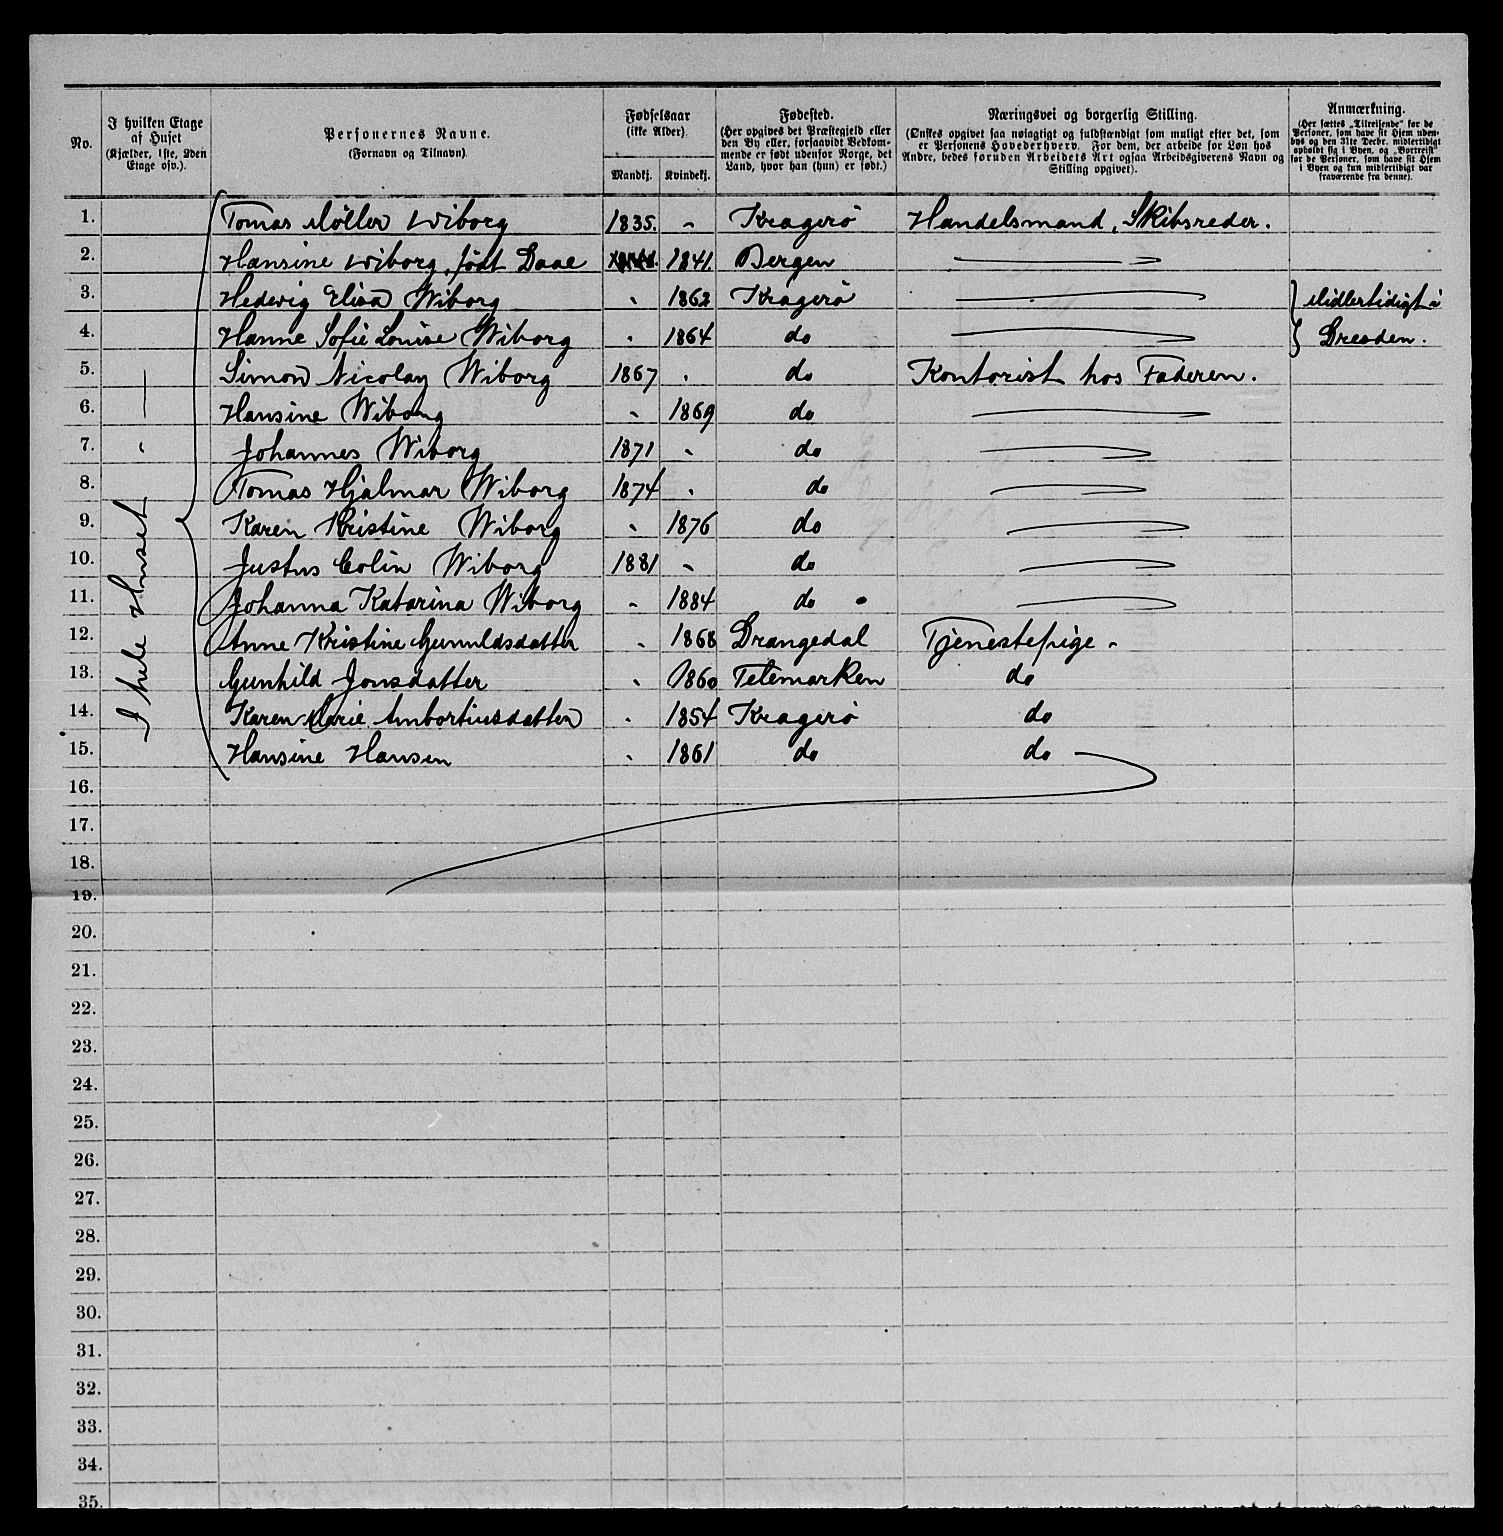 No.
I hvilken Etage af Huset (Kjælder, 1ste, 2den Etage osv.).
Personernes Navne. (Fornavn og Tilnavn).
Fødselsaar (ikke Alder). Mandkj. Kvindekj.
Fødested. (Her opgives det Præstegjeld eller den By eller, forsaavidt Vedkommende er født udenfor Norge, det Land, hvor han (hun) er født.)
Næringsvei og borgerlig Stilling. (Ønskes opgivet saa nøiagtigt og fuldstændigt som muligt efter det, som er Personens Hovederhverv. For dem, der arbeide for Løn hos Andre, bedes foruden Arbeidets Art ogsaa Arbeidsgiverens Navn og Stilling opgivet).
Anmærkning. (Her sættes „Tilreisende“ for de Personer, som have sit Hjem udenbys og den 31te Decbr. midlertidigt opholdt sig i Byen, og „Bortreist“ for de Personer, som have sit Hjem i Byen og kun midlertidigt var fraværende fra denne).
I hele Huset
1. Tomas Møller Wiborg 1835. - Kragerö Handelsmand, Skibsreder.
2. Hansine Wiborg, født Daae 1841. Bergen
3. Hedevig Elisa Wiborg " 1862 Kragerö Midlertidigt i
4. Hanne Sofie Louise Wiborg " 1864 do Dresden.
5. Simon Nicolay Wiborg 1867 " do Kontorist hos Faderen.
6. Hansine Wiborg " 1869 do
7. Johannes Wiborg 1871 " do
8. Tomas Hjalmar Wiborg 1874 " do
9. Karen Kristine Wiborg " 1876 do
10. Justus Colin Wiborg 1881 " do
11. Johanna Katarina Wiborg " 1884 do
12. Anne Kristine Gunuldsdatter " 1868 Drangedal Tjenestepige
13. Gunhild Jonsdatter " 1860 Telemarken do
14. Karen Marie Ambortiusdatter " 1854 Kragerö do
15. Hansine Hansen " 1861 do do
16.
17.
18.
19.
20.
21.
22.
23.
24.
25.
26.
27.
28.
29.
30.
31.
32.
33.
34.
35.